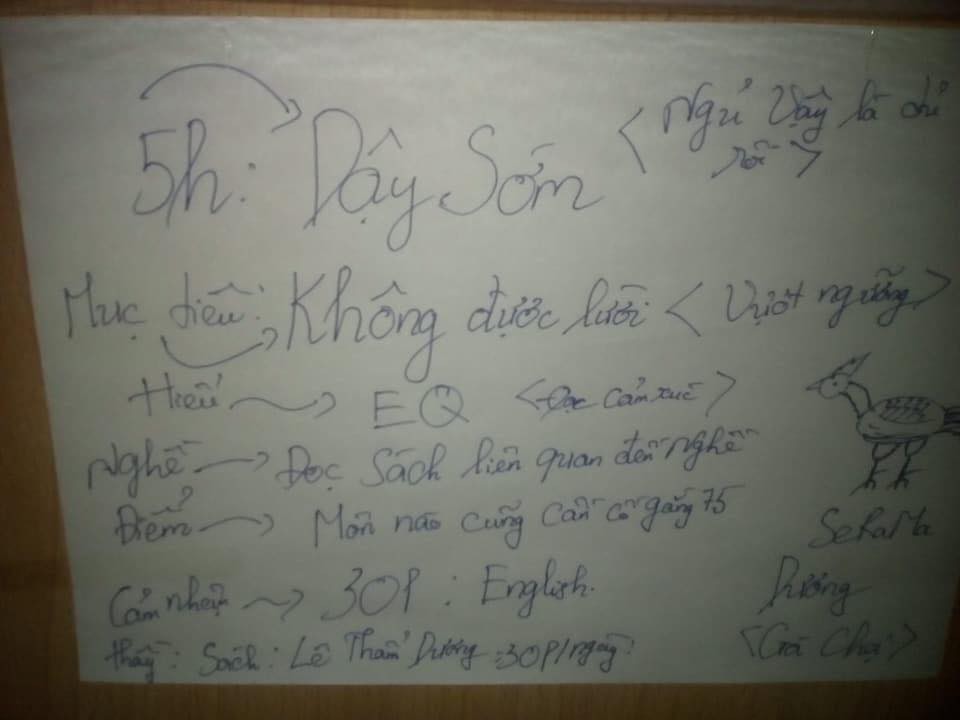 5h: Dậy Sớm < Ngủ Vậy là đủ
rồi >
Mục tiêu: Không được lười < Vượt ngưỡng >
Hiểu → EQ < Đọc cảm xúc >
Nghề → Đọc Sách liên quan đến Nghề
Điểm → Môn nào cũng cần cố gắng 75
SeRaMa
Cảm nhận → 30P : English.
Dương
thấy : Sách : Lê Thẩm Dương : 30P/ngày